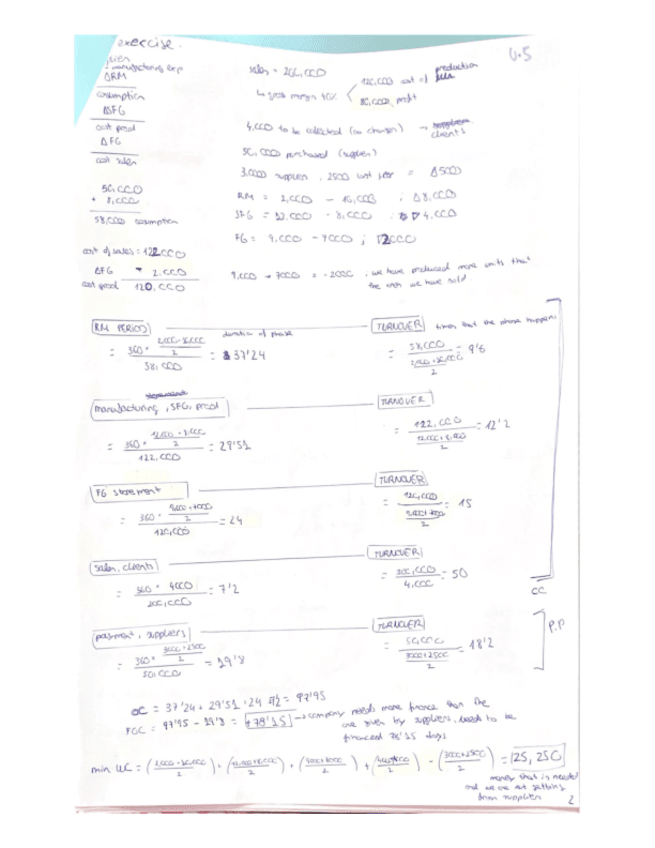 exercise.
4.5
manufacturing exp
ΔRM
consumption
ΔSFG
cost prod
ΔFG
cost sales
50,000
+ 8,000
58,000 consumption
cost of sales = 122,000
ΔFG 2.000
cost prod 120,000
sales = 200,000
gross margin 40%
120,000 cost of production
80,000 profit
4,000 to be collected (on charges) → clients
50,000 purchased (suppliers)
3,000 suppliers, 2500 last year = Δ500
RM = 2,000 - 10,000 ; Δ8,000
SFG = 12,000 - 8,000 ; ∇ 4,000
FG = 9,000 - 7000 ; ∇2000
9,000 → 7000 = -2000, we have produced more units that
the ones we have sold.
RM PERIOD
duration of phase
= 360 · 2,000+10,000 / 2 / 58,000 = 37'24
TURNOVER times that the phase happens
= 58,000 / 2,000+10,000 / 2 = 9'6
manufacturing, SFG, prod
= 360 · 12,000+8,000 / 2 / 122,000 = 29'51
TURNOVER
= 122,000 / 12,000+8,000 / 2 = 12'2
FG storement
= 360 · 9000+7000 / 2 / 120,000 = 24
TURNOVER
= 120,000 / 9000+7000 / 2 = 15
sales, clients
= 360 · 4000 / 200,000 = 7'2
TURNOVER
= 200,000 / 4,000 = 50
CC
payment, suppliers
= 360 · 3000+2500 / 2 / 50,000 = 19'8
TURNOVER
= 50,000 / 3000+2500 / 2 = 18'2
P.P
OC = 37'24 + 29'51 + 24 + 7'2 = 97'95
FOC = 97'95 - 19'8 = +78'15 → company needs more finance than the
one given by suppliers, needs to be
financed 78'15 days
min WC = (2,000+10,000 / 2) + (12,000+8,000 / 2) + (9000+7000 / 2) + (4000 / 2) - (3000+2500 / 2) = 25,250
money that is needed
and we are not getting
from suppliers
2